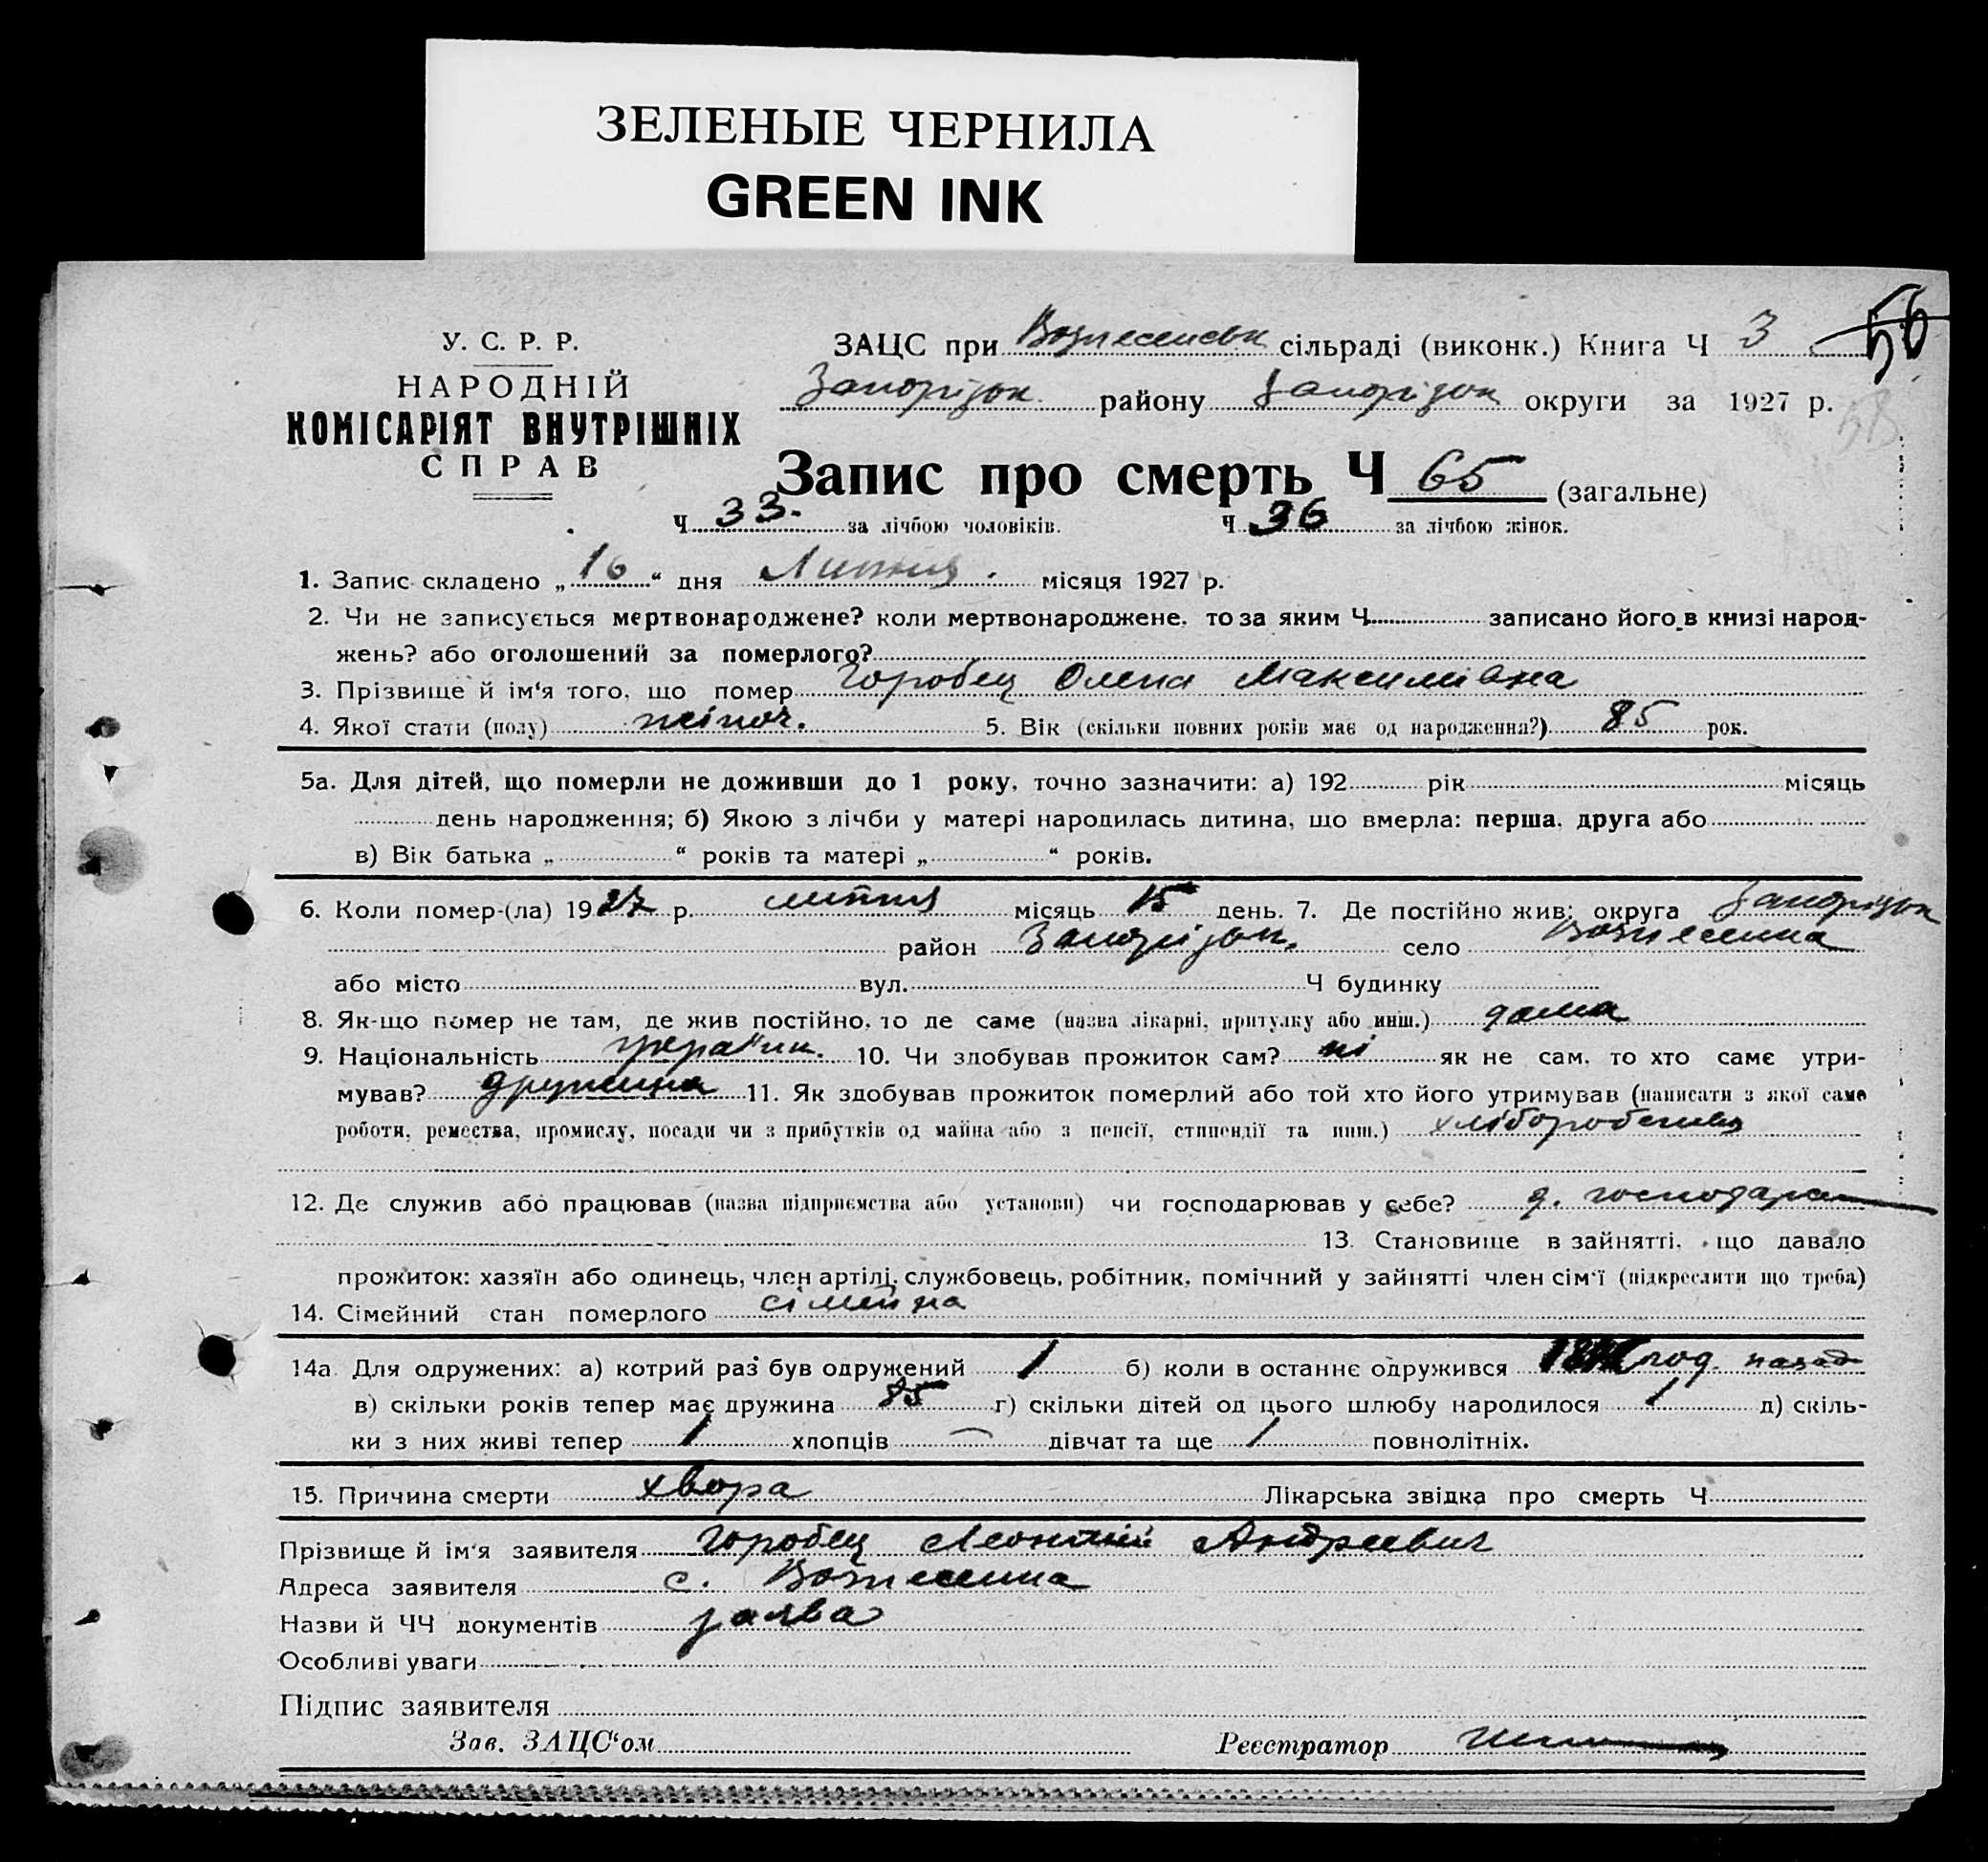 ЗЕЛЕНЫЕ ЧЕРНИЛА
GREEN INK
56
У. С. Р. Р.
НАРОДНІЙ
КОМІСАРІЯТ ВНУТРІШНІХ
СПРАВ
ЗАЦС при Вознесенськ сільраді (виконк.) Книга Ч 3
Запорізьк району Запорізьк округи за 1927 р.
58
Запис про смерть Ч 65 (загальне)
Ч 33. за лічбою чоловіків. Ч 36 за лічбою жінок.
1. Запис складено „16“ дня Липня. місяця 1927 р.
2. Чи не записується мертвонароджене? коли мертвонароджене, то за яким Ч записано його в книзі народ-
жень? або оголошений за померлого?
3. Прізвище й ім‘я того, що помер Горобец Олена Максимівна
4. Якої стати (полу) жіноч. 5. Вік (скільки повних років має од народження?) 85 рок.
5а. Для дітей, що померли не доживши до 1 року, точно зазначити: а) 192 рік місяць
день народження; б) Якою з лічби у матері народилась дитина, що вмерла: перша, друга або
в) Вік батька „ “ років та матері „ “ років.
6. Коли помер-(ла) 1927 р. липня місяць 15 день. 7. Де постійно жив: округа Запорізьк
район Запорізьк. село Вознесенка
або місто вул. Ч будинку
8. Як-що помер не там, де жив постійно, то де саме (назва лікарні, притулку або инш.) дома
9. Національність україн. 10. Чи здобував прожиток сам? ні як не сам, то хто саме утри-
мував? дружина 11. Як здобував прожиток померлий або той хто його утримував (написати з якої саме
роботи, ремества, промислу, посади чи з прибутків од майна або з пенсії, стипендії та инш.) хліборобства
12. Де служив або працював (назва підприємства або установи) чи господарював у себе? д. господарс
13. Становище в зайнятті, що давало
прожиток: хазяїн або одинець, член артілі, службовець, робітник, помічний у зайнятті член сім‘ї (підкреслити що треба)
14. Сімейний стан померлого сімейна
14а. Для одружених: а) котрий раз був одружений 1 б) коли в останнє одружився год. назад
в) скільки років тепер має дружина 85 г) скільки дітей од цього шлюбу народилося 1 д) скіль-
ки з них живі тепер 1 хлопців — дівчат та ще 1 повнолітніх.
15. Причина смерти хвора Лікарська звідка про смерть Ч
Прізвище й ім‘я заявителя Горобец Леонтій Андреевич
Адреса заявителя с. Вознесенка
Назви й ЧЧ документів заява
Особливі уваги
Підпис заявителя
Зав. ЗАЦС‘ом Реєстратор